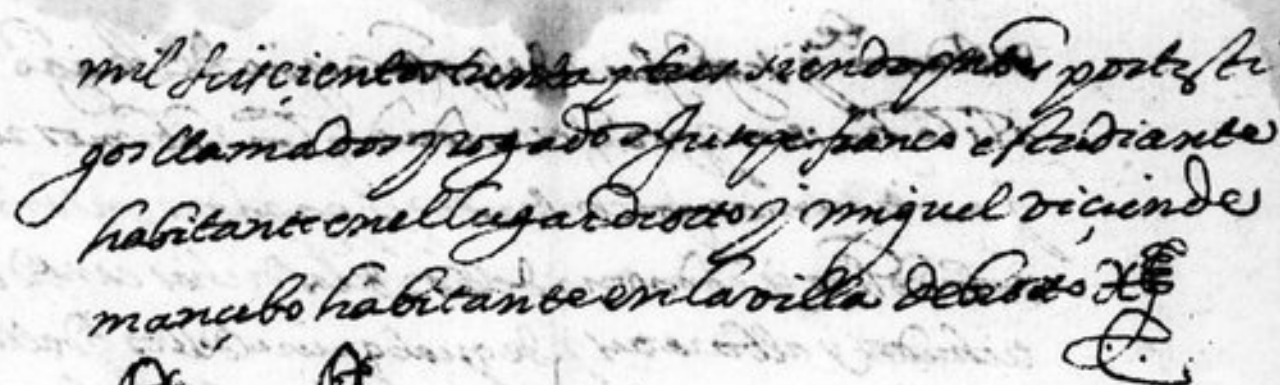 mil seiscientos trenta y tres siendo pntes por testi
gos llamados y rogados Jusepe franco estudiante
habitante en el lugar de y miguel viçiende
mançebo habitante en la villa de